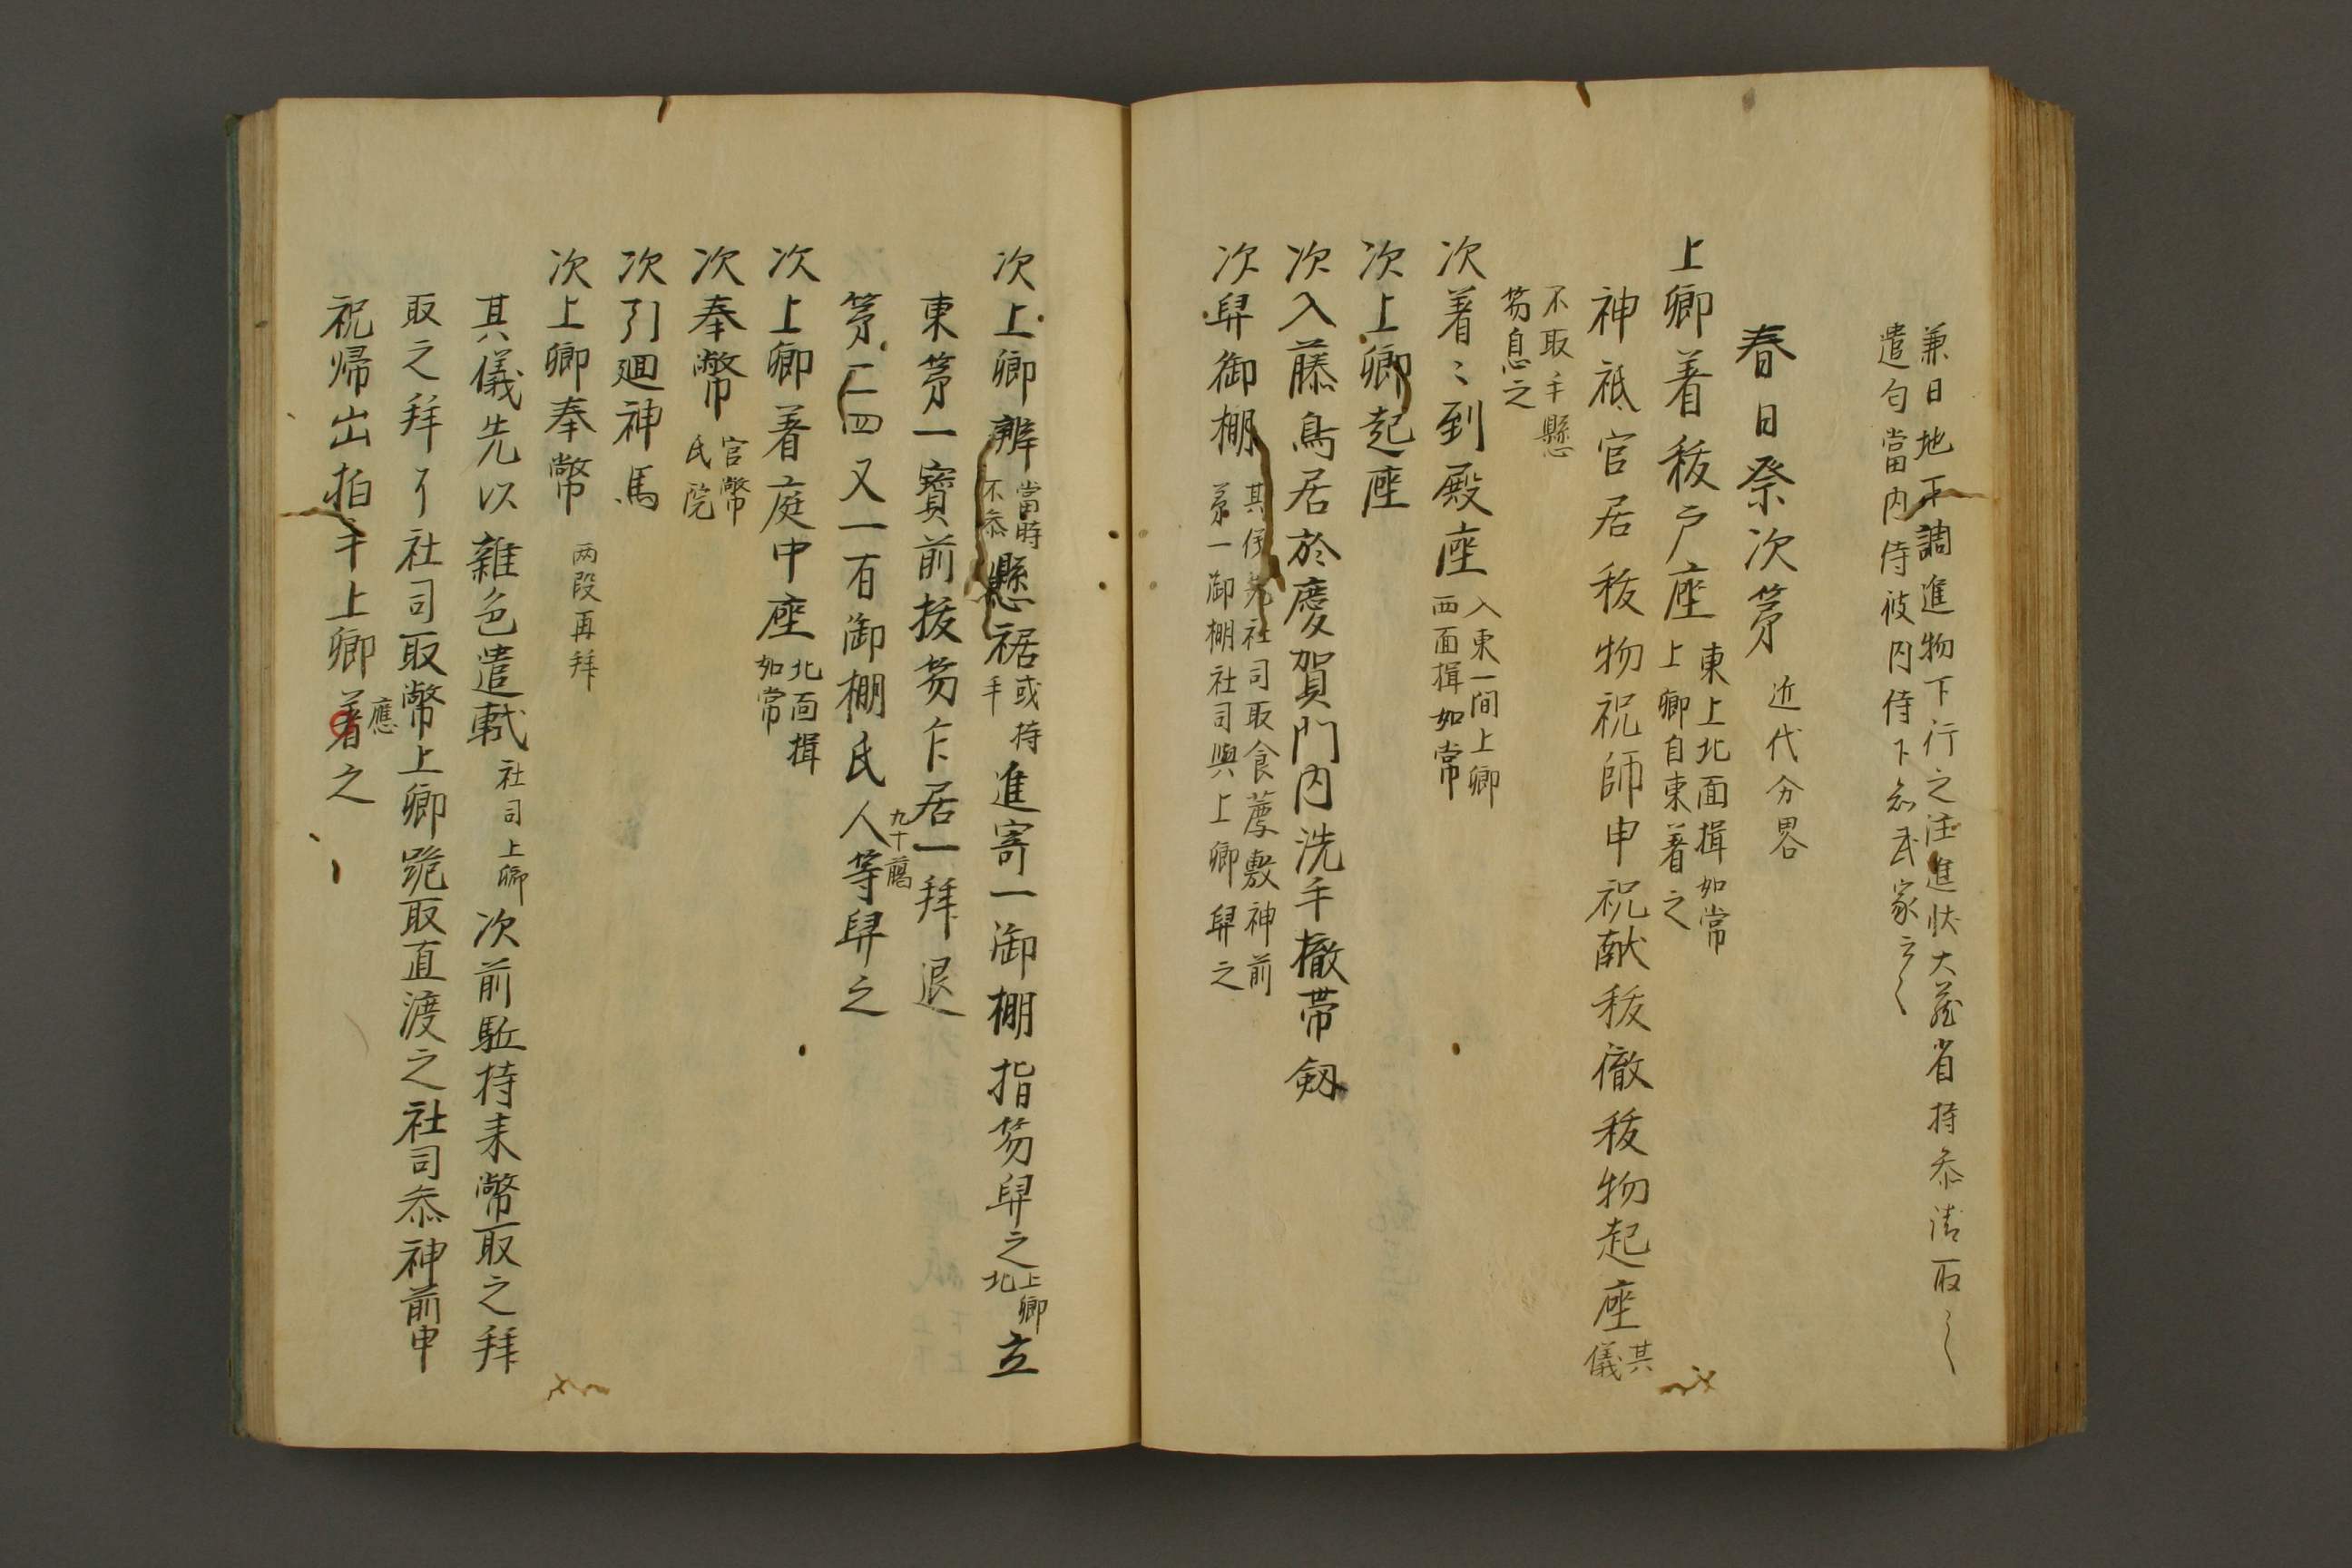 兼日地下調進物下行之注進状大蔵省持参請取之
遣勾當内侍彼内侍下知武家云々
春日祭次第 近代分畧
上卿着祓戸座 東上北面揖如常
上卿自東著之
神祇官居祓物祝師申祝献祓徹祓物起座 其
儀
不取手懸
笏息之
次着〻到殿座 入東一間上卿
西面揖如常
次上卿起座
次入藤鳥居於慶賀門内洗手撤帯剱
次舁御棚 其儀先社司取食薦敷神前
第一御棚社司與上卿舁之
次上卿辨 當時
不参 懸裾 或持
手 進寄一御棚指笏舁之 上卿
北 立
東第一寶前抜笏乍居一拜退
第二三四又一有御棚氏人等舁之
九十﨟
次上卿著庭中座 北面揖
如常
次奉幣 官幣
氏院
次引廻神馬
次上卿奉幣 両段再拜
其儀先以雜色遣軾 社司上卿 次前駈持来幣取之拜
取之拜了社司取幣上卿跪取直渡之社司参神前申
祝帰出拍手上卿著之
應